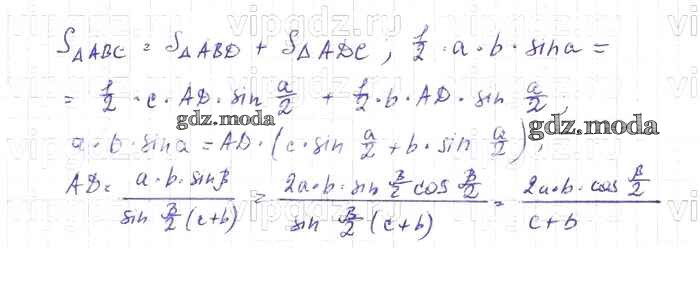 S△ABC = S△ABD + S△ADC, 1/2 · a · b · sin a =
= 1/2 · c · AD · sin a/2 + 1/2 · b · AD · sin a/2,
gdz.moda
gdz.moda
a · b · sin a = AD · (c · sin a/2 + b · sin a/2),
AD = a · b · sin β / sin β/2 (c+b) = 2a · b · sin β/2 cos β/2 / sin β/2 (c+b) = 2a · b · cos β/2 / c+b